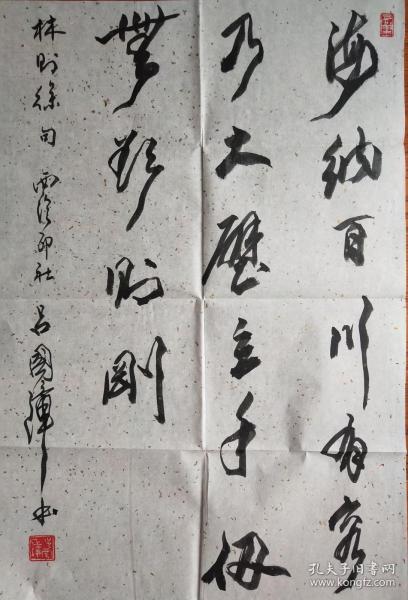 海纳百川有容
乃大壁立千仞
無欲則剛
林则徐句 西泠印社 吕國璋书
孔夫子旧书网
www.kongfz.com